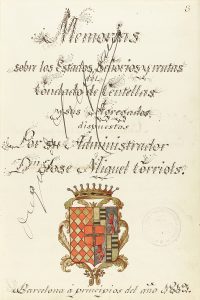 3
Memorias
sobre los Estados, Señorios y rentas
del
Condado de Centellas
y sus Agregados
dispuestas
Por su Administrador
Dn Jose Miquel Torriols.
Barcelona á principios del año